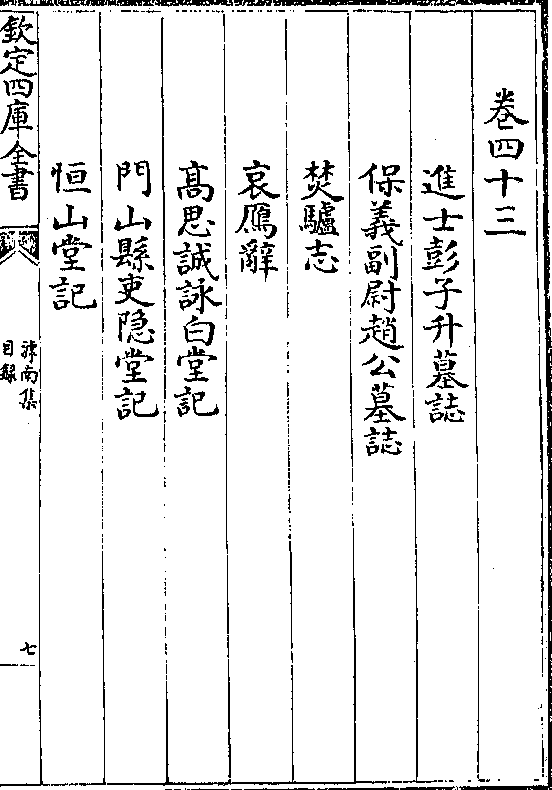 卷四十三
進士彭子升墓誌
保義副尉趙公墓誌
焚驢志
哀鴈辭
髙思誠詠白堂記
門山縣吏隐堂記
恒山堂記
欽定四庫全書
滹南集
目録
七